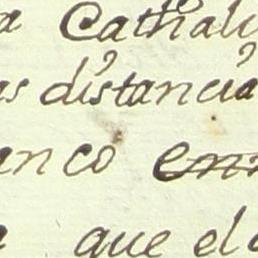 a Cathalu
as distancia
anco
que el